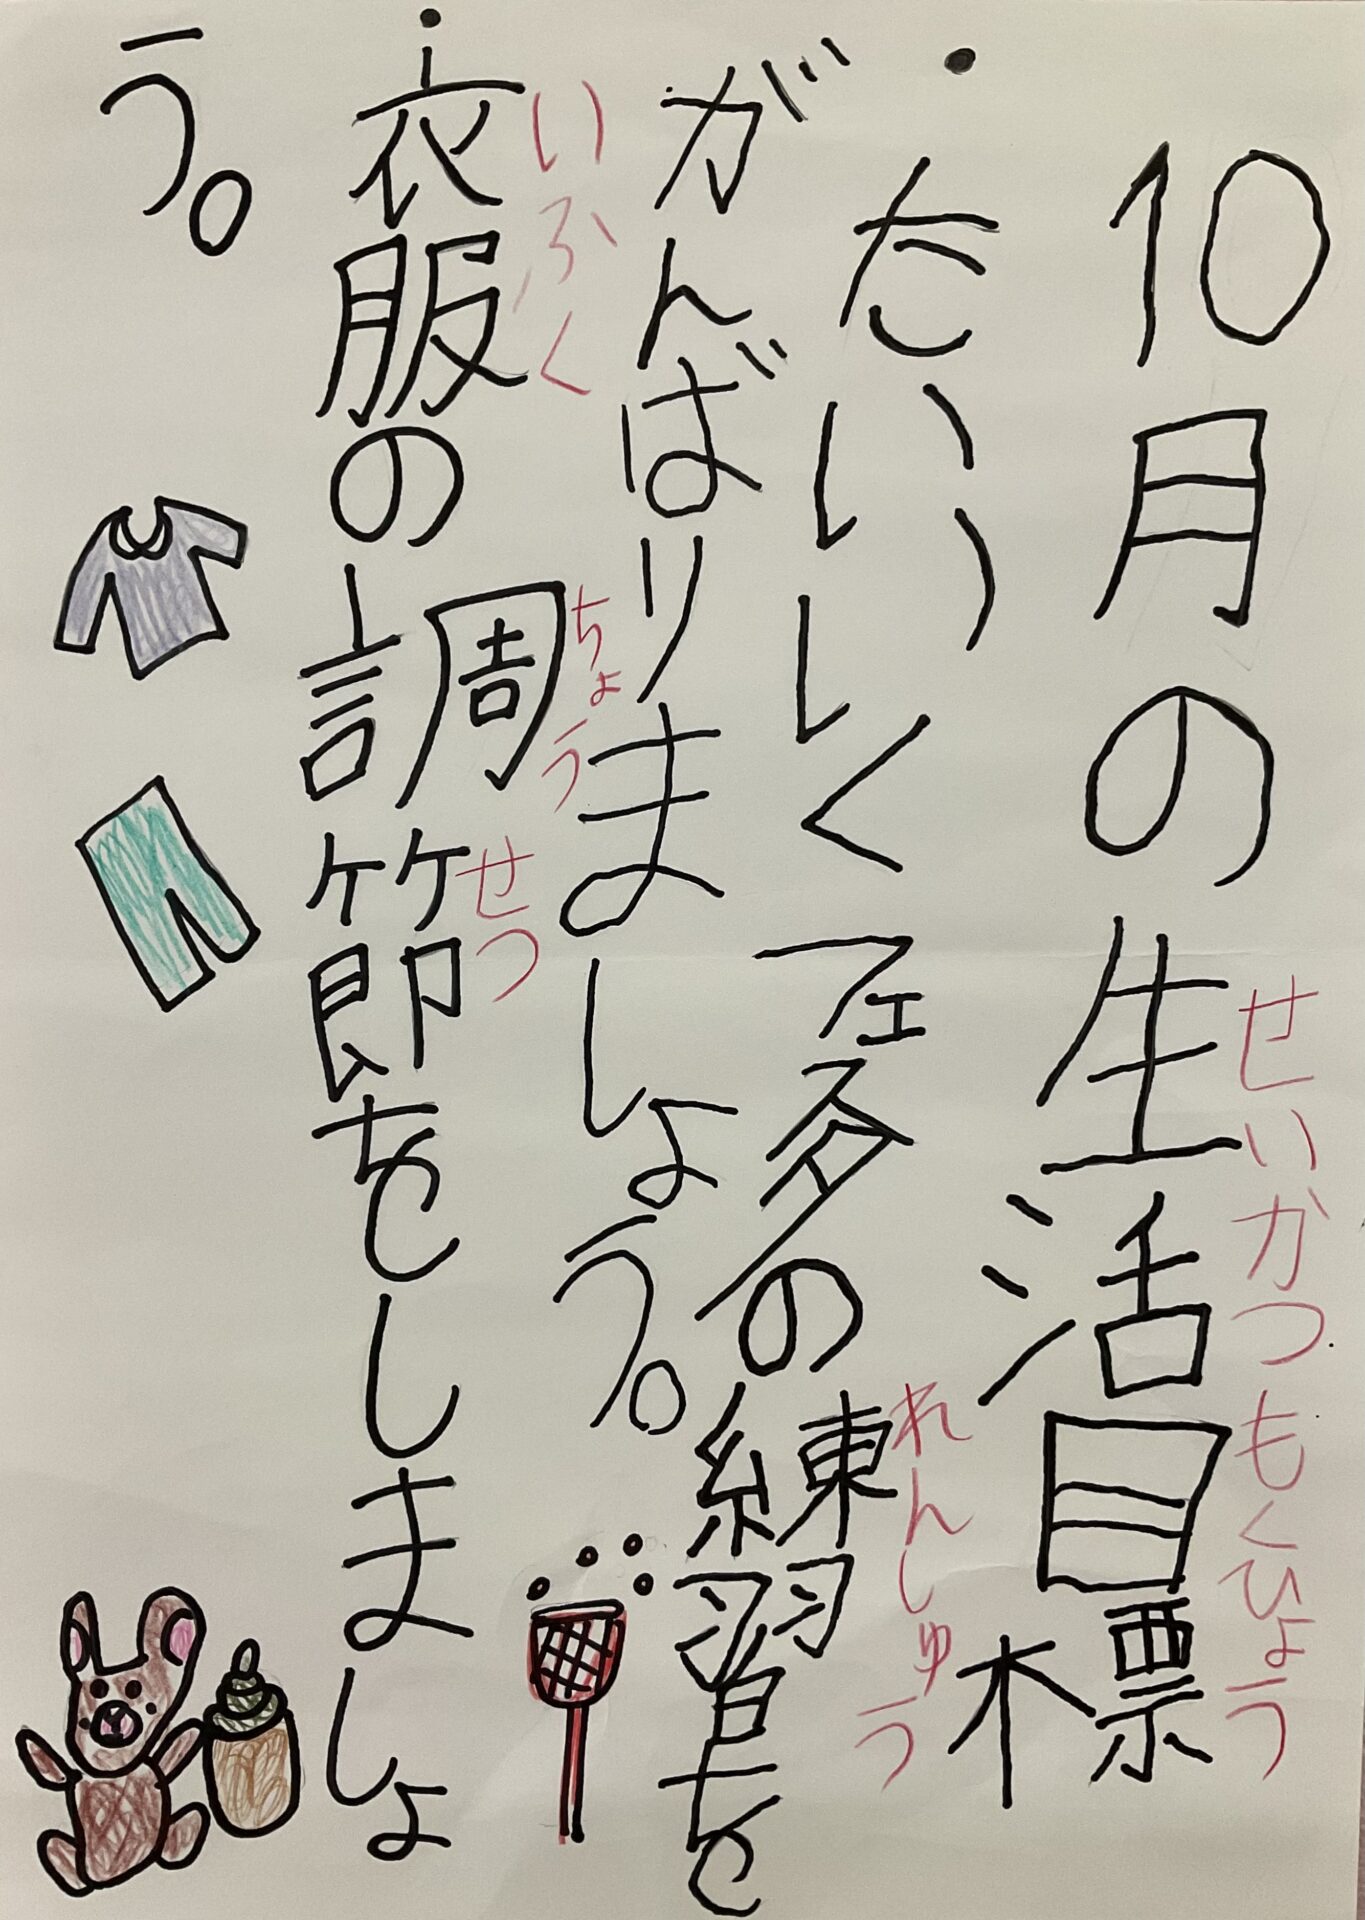 10月の生活目標
せいかつもくひょう
・たいいくフェスタの練習を
れんしゅう
がんばりましょう。
・衣服の調節をしましょ
いふく ちょうせつ
う。